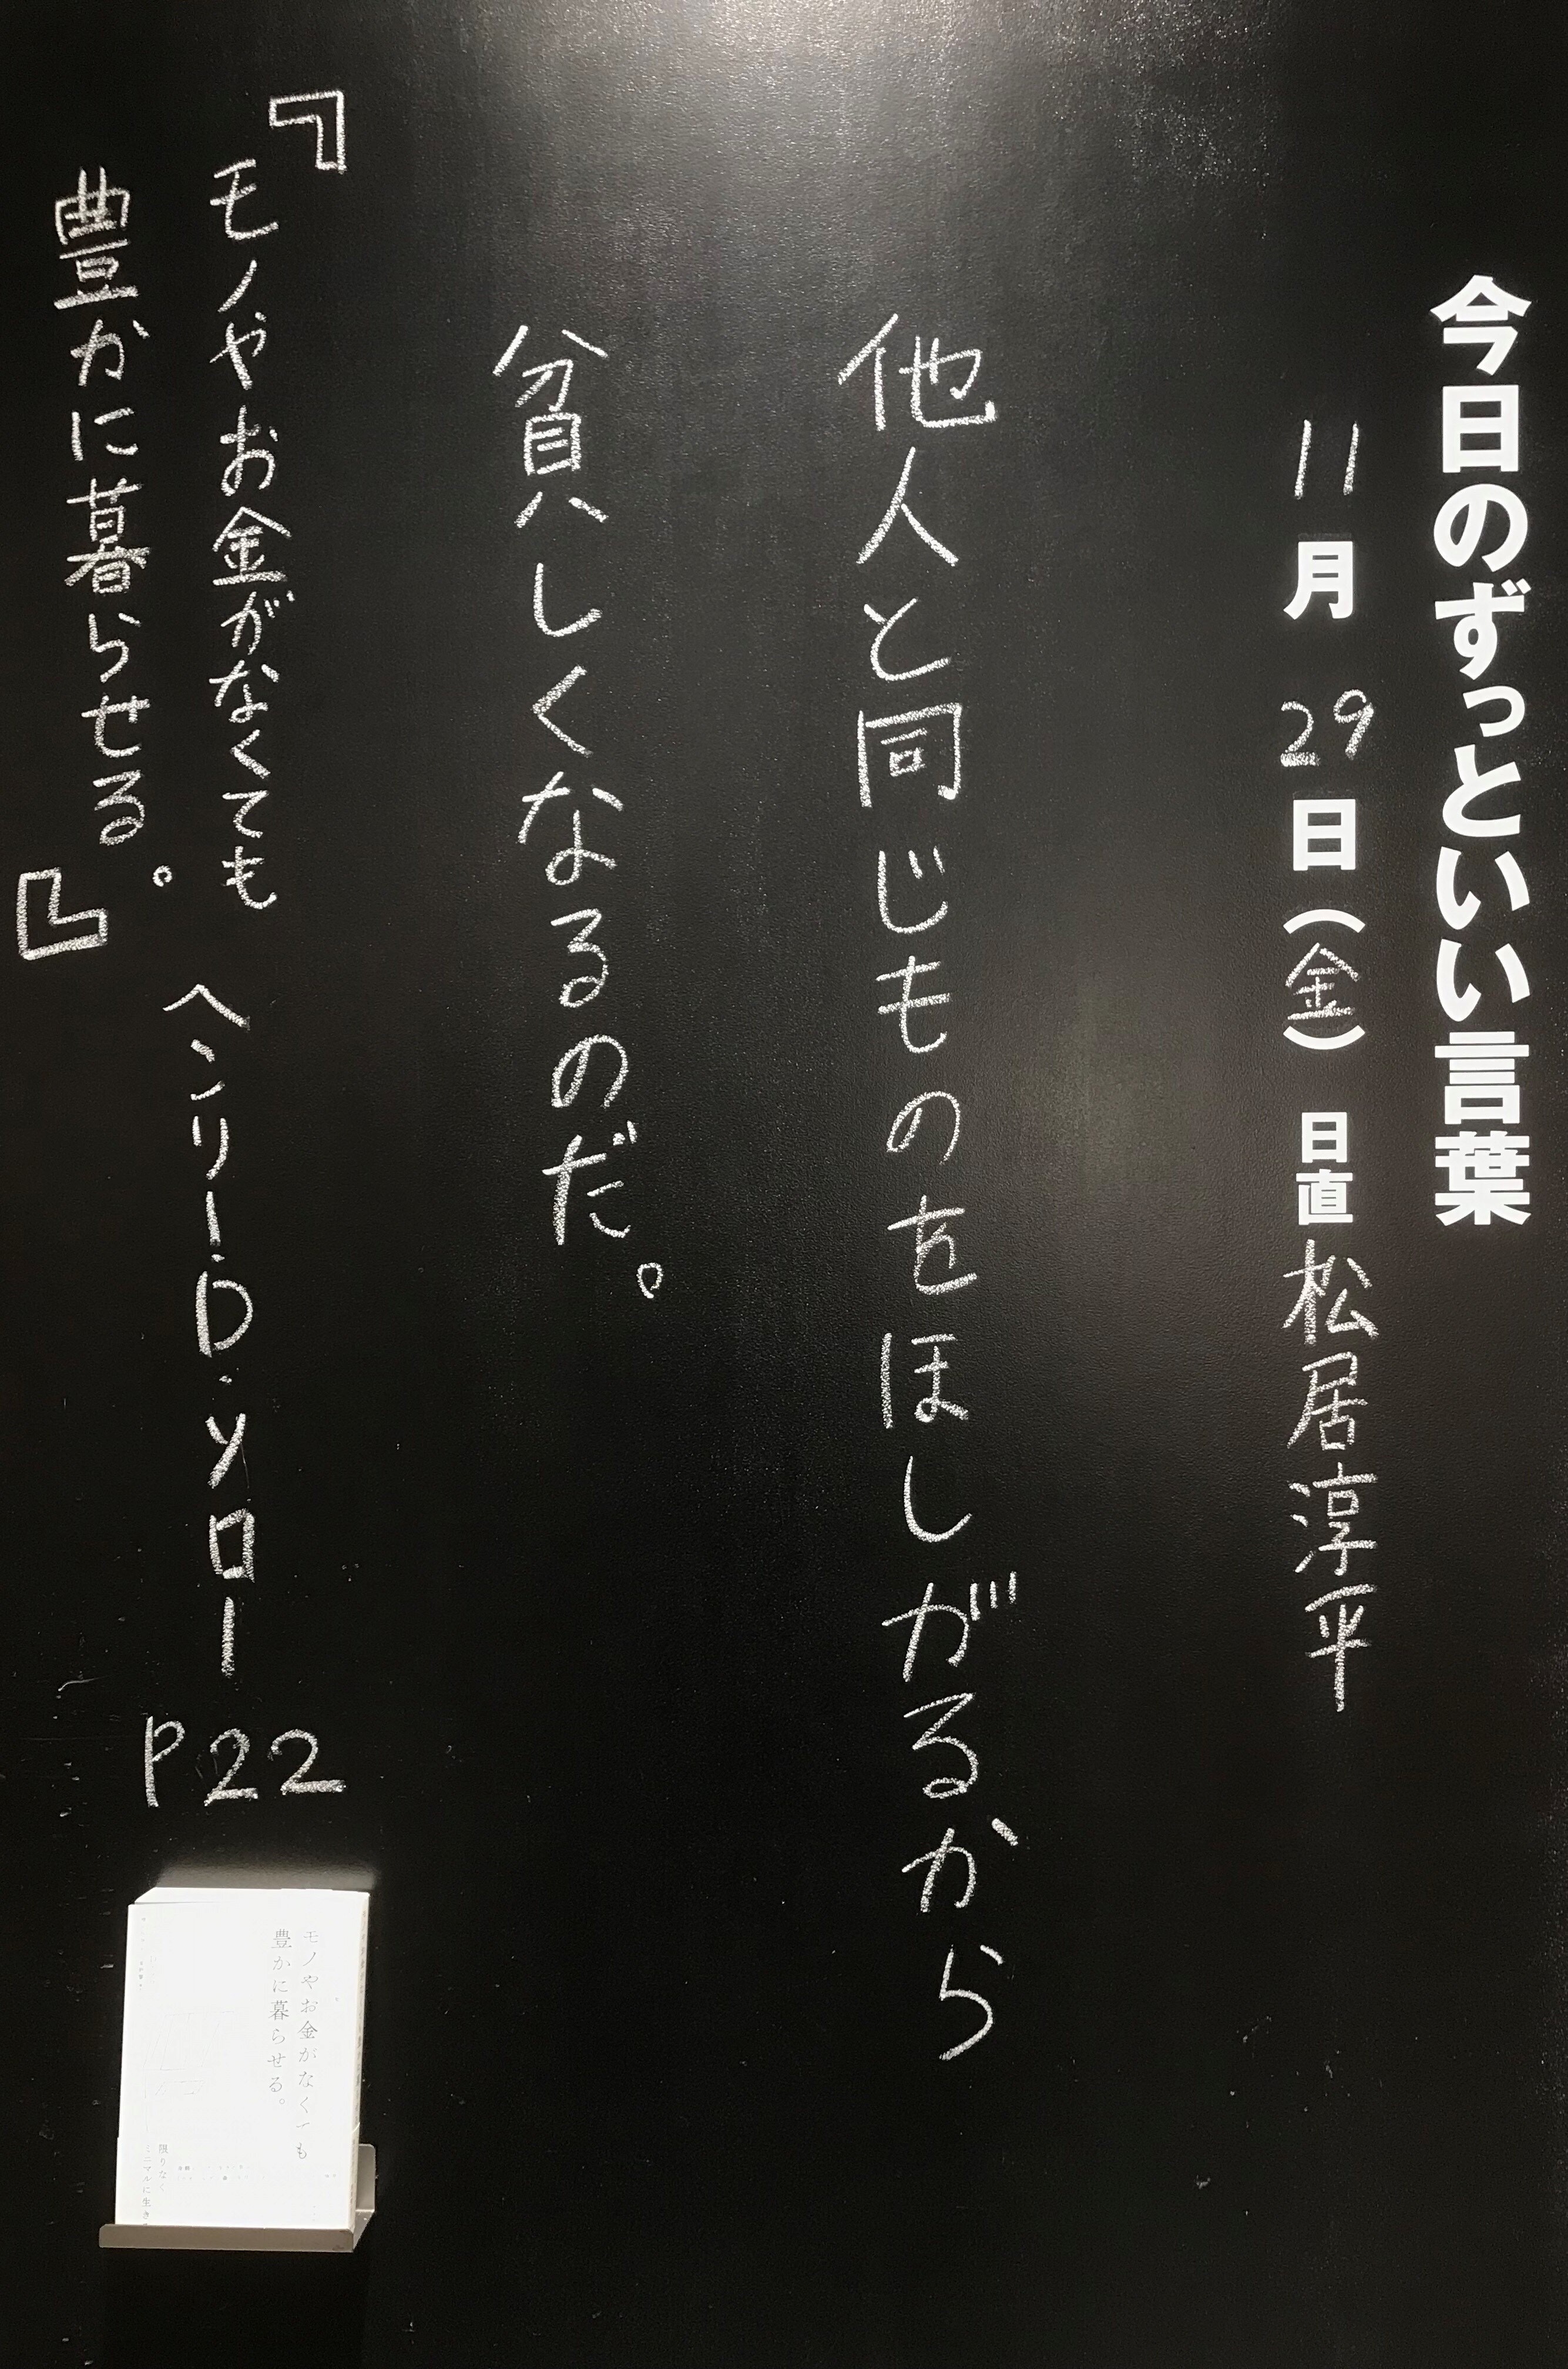 今日のずっといい言葉
11月29日(金) 日直 松居淳平
他人と同じものをほしがるから
貧しくなるのだ。
『モノやお金がなくても
豊かに暮らせる。』
ヘンリー・D・ソロー P22
モノやお金がなくても
豊かに暮らせる。
限りなく
ミニマルに生きる